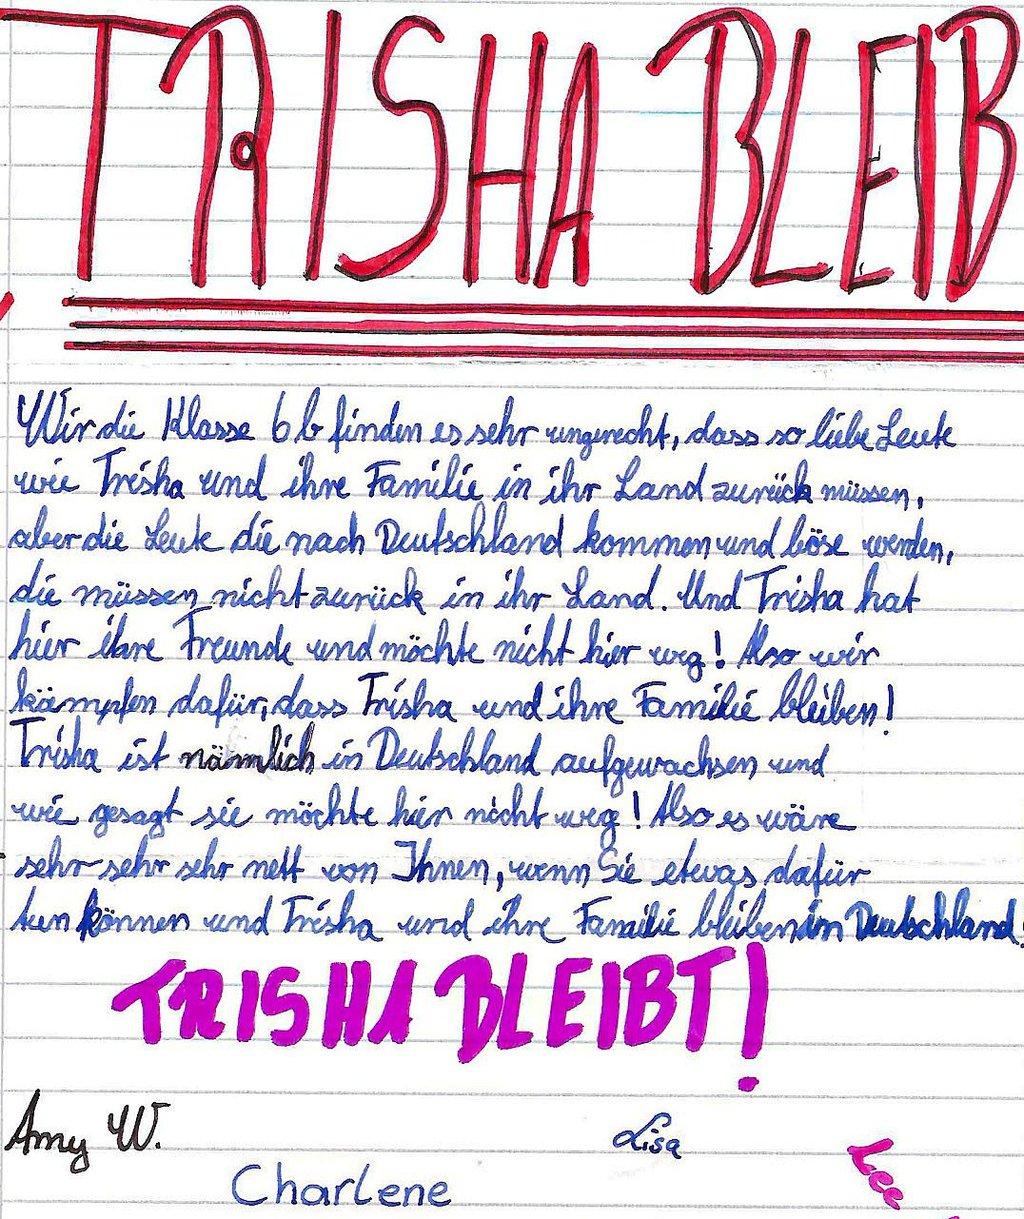 TRISHA BLEIB
Wir die Klasse 6b finden es sehr ungerecht, dass so liebe Leute
wie Trisha und ihre Familie in ihr Land zurück müssen,
aber die Leute die nach Deutschland kommen und böse werden,
die müssen nicht zurück in ihr Land. Und Trisha hat
hier ihre Freunde und möchte nicht hier weg! Also wir
kämpfen dafür, dass Trisha und ihre Familie bleiben!
Trisha ist nämlich in Deutschland aufgewachsen und
wie gesagt sie möchte hier nicht weg! Also es wäre
sehr sehr sehr nett von Ihnen, wenn Sie etwas dafür
tun können und Trisha und ihre Familie bleiben in Deutschland!
TRISHA BLEIBT!
Amy W.
Lisa
Charlene
Lee